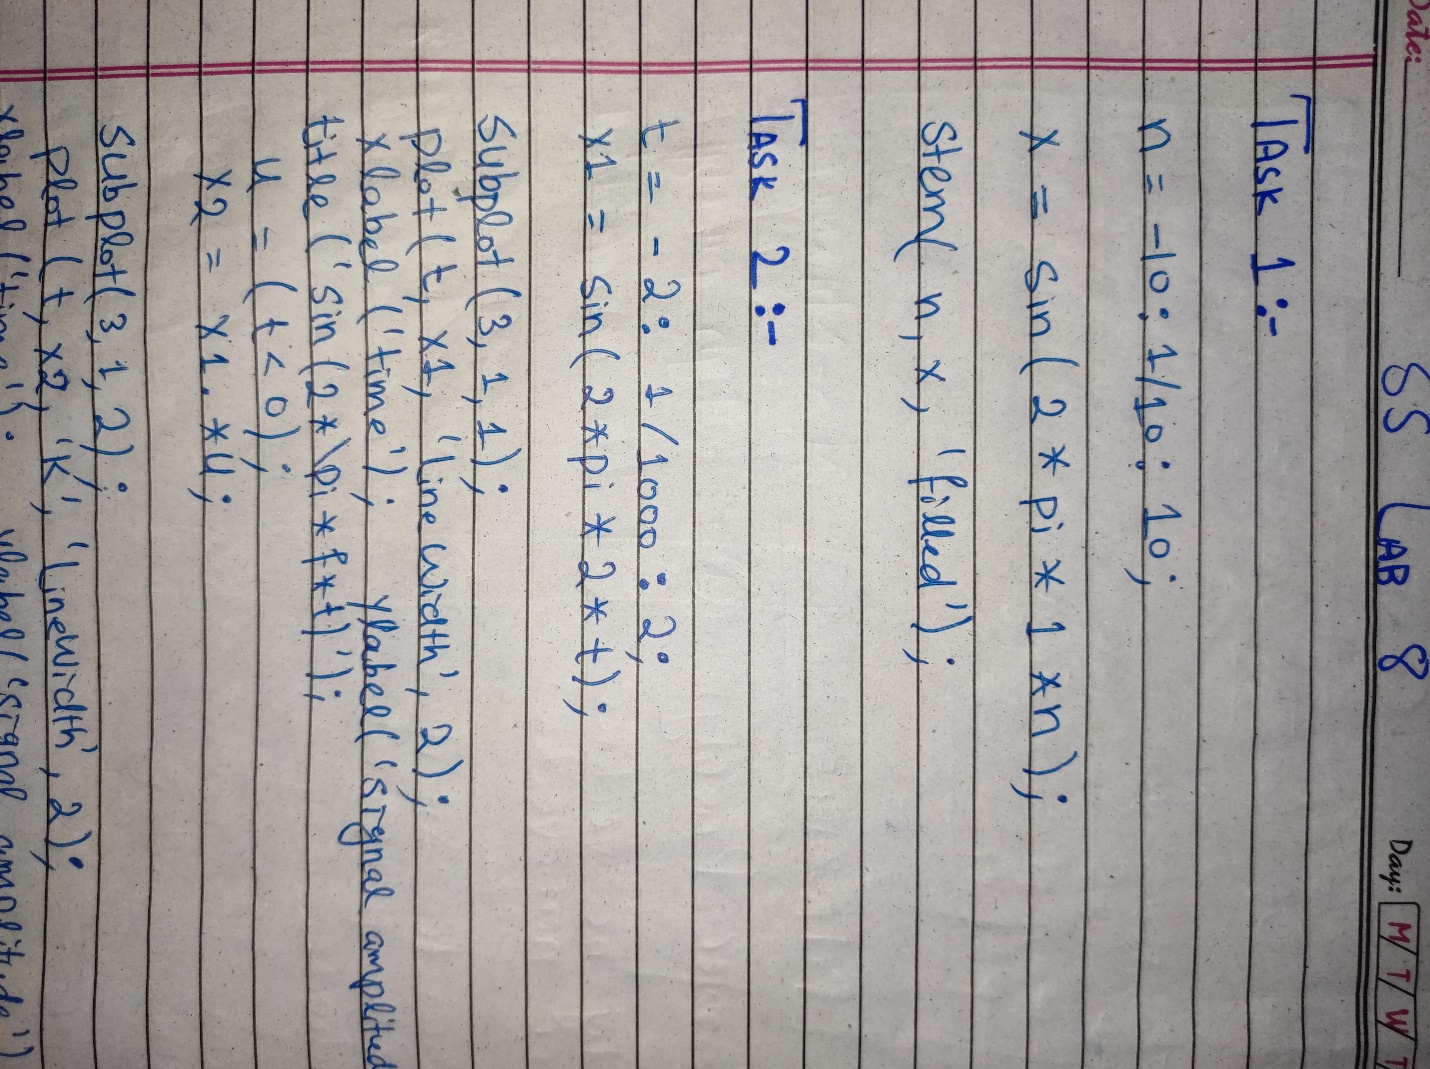 Date:
SS LAB 8
Day: M/T/W/T/
TASK 1:-
n = -10:1/10:10;
x = sin(2*pi*1*n);
Stem(n,x,'filled');
TASK 2:-
t = -2:1/1000:2;
x1 = sin(2*pi*2*t);
Subplot(3,1,1);
plot(t,x1,'linewidth',2);
xlabel('time'); ylabel('signal amplitud
title('sin(2*\pi*f*t)');
u = (t<0);
x2 = x1.*u;
Subplot(3,1,2);
plot(t,x2,'K','linewidth',2);
xlabel('time'); ylabel('signal amplitude')